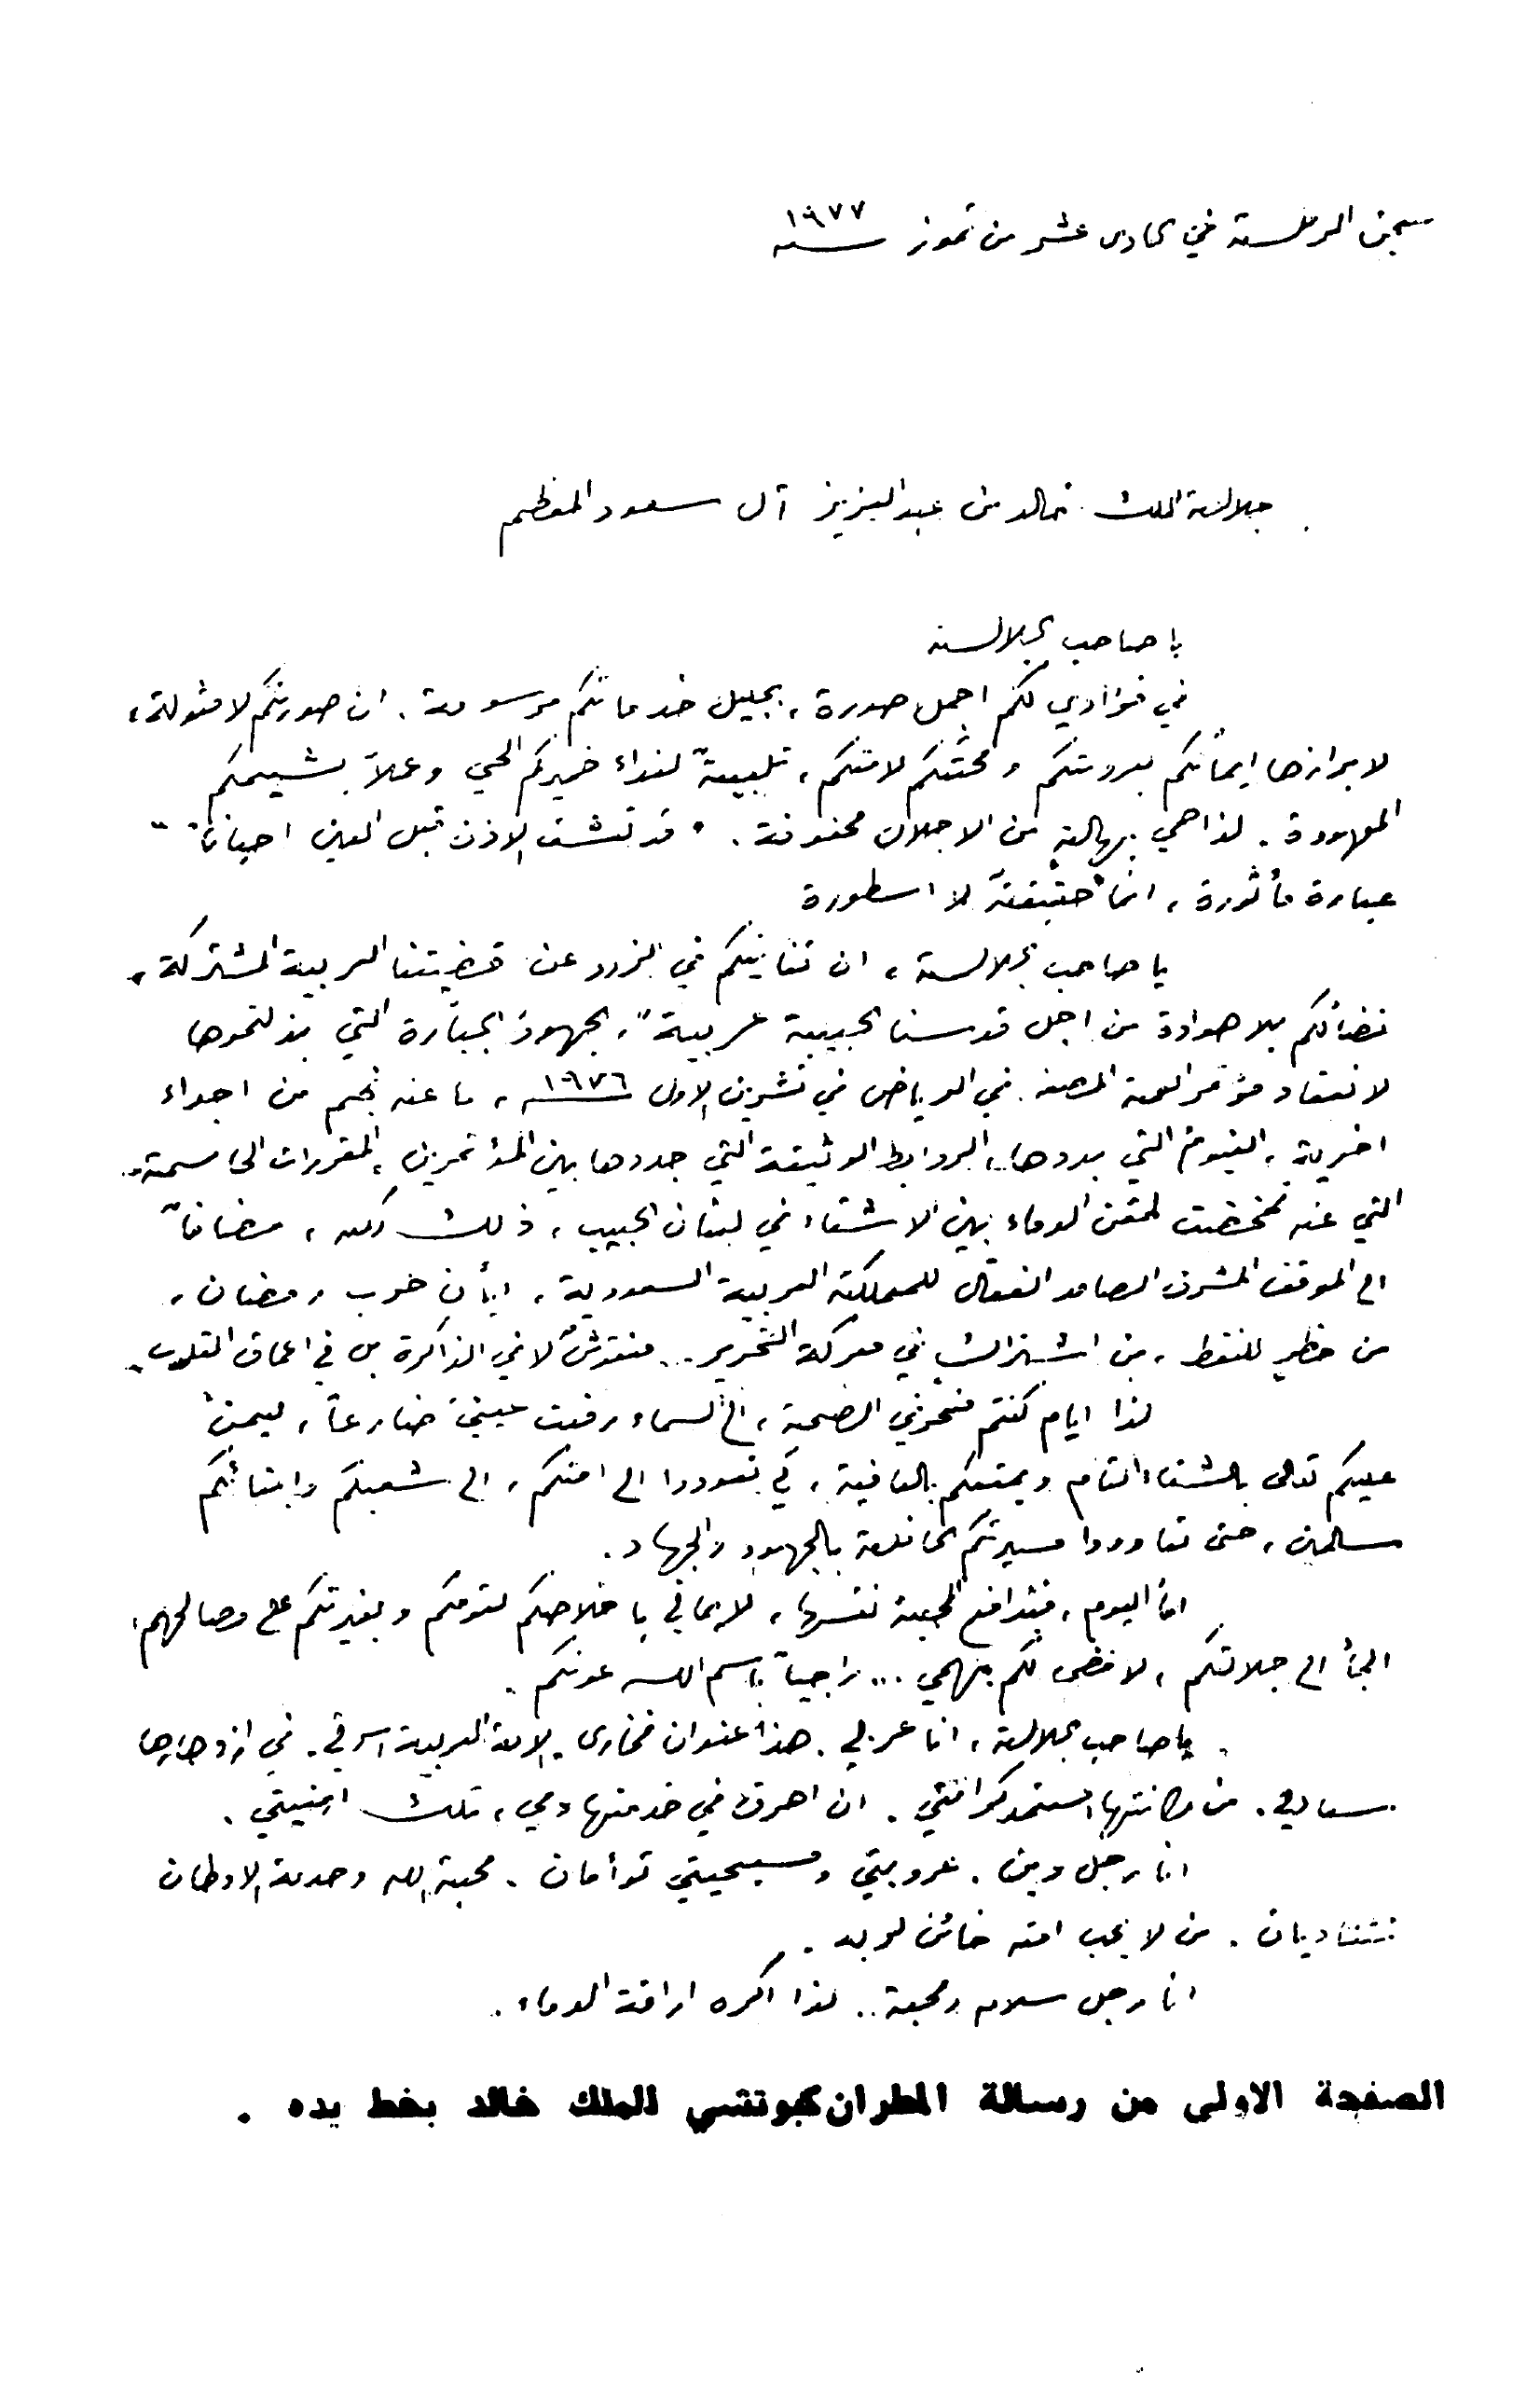 سجن الرملة في الحادي عشر من تموز سنة ١٩٧٧
جلالة الملك خالد بن عبد العزيز آل سعود المعظم
يا صاحب الجلالة
في فؤادي لكم اجمل صورة، بجليل خدماتكم مرسومة. ان صورتكم لامثولة،
لابرازها ايمانكم بعروبتكم ومحبتكم لامتكم، تلبيةً لنداء ضميركم الحي وعملاً بشيمكم
المعهودة. لذا هي بهالةٍ من الاجلال محفوفة. "قد تعشق الاذن قبل العين احياناً"
عبارة مأثورة، انما حقيقة لا اسطورة
يا صاحب الجلالة، ان تفانيكم في الذود عن قضيتنا العربية المشتركة،
نضالكم بلا هوادة من اجل قدسنا الحبيبة عربية، الجهودَ الجبّارة التي بذلتموها
لانعقاد مؤتمر القمة المصغر في الرياض في تشرين الاول سنة ١٩٧٦، ما عنه نجم من اجواء
اخوية، الغيومَ التي بددها، الروابط الوثيقة التي جددها بين المؤتمرين، المقررات الحاسمة
التي عنه تمخضت لحقن الدماء بين الاشقاء في لبنان الحبيب، ذلك كله، مضافاً
الى الموقف المشرف الصامد الفعّال للمملكة العربية السعودية، ابّان حرب رمضان،
من حظرٍ للنفط، من اشتراك في معركة التحرير... منقوشٌ لا في الذاكرة بل في اعماق القلوب.
لذا ايام كنتم منحرفي الصحة، الى السماء رفعت عينيّ ضارعاً، ليمنّ
عليكم تعالى بالشفاء التام ويمتعكم بالعافية، كي تعودوا الى امتكم، الى شعبكم وابنائكم
سالمين، حتى تعاودوا مسيرتكم الحافلة بالجهود والجهاد.
امّا اليوم، فبدافع المحبة نفسها، لايماني باخلاصكم لقومكم وبغيرتكم على مصالحهم،
الجأ الى جلالتكم، لافضي لكم بهمي... راجياً باسم الله عونكم.
يا صاحب الجلالة، انا عربي. هذا عنوان فخاري. الامة العربية اسرتي. في ازدهارها
سعادتي. من مكانتها استمد كرامتي. ان اهرق في خدمتها دمي، تلك امنيتي.
انا رجل دين. عروبتي ومسيحيتي توأمان. محبة الله وخدمة الاوطان
تتناديان. من لا يحب امته خائن لربه.
انا رجل سلام ومحبة.. لذا اكره اراقة الدماء.
الصفحة الاولى من رسالة المطران كبوتشي للملك خالد بخط يده .